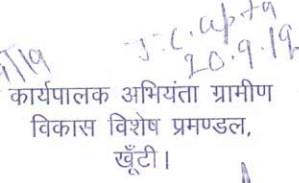 20.9.19
कार्यपालक अभियंता ग्रामीण
विकास विशेष प्रमण्डल,
खूँटी।